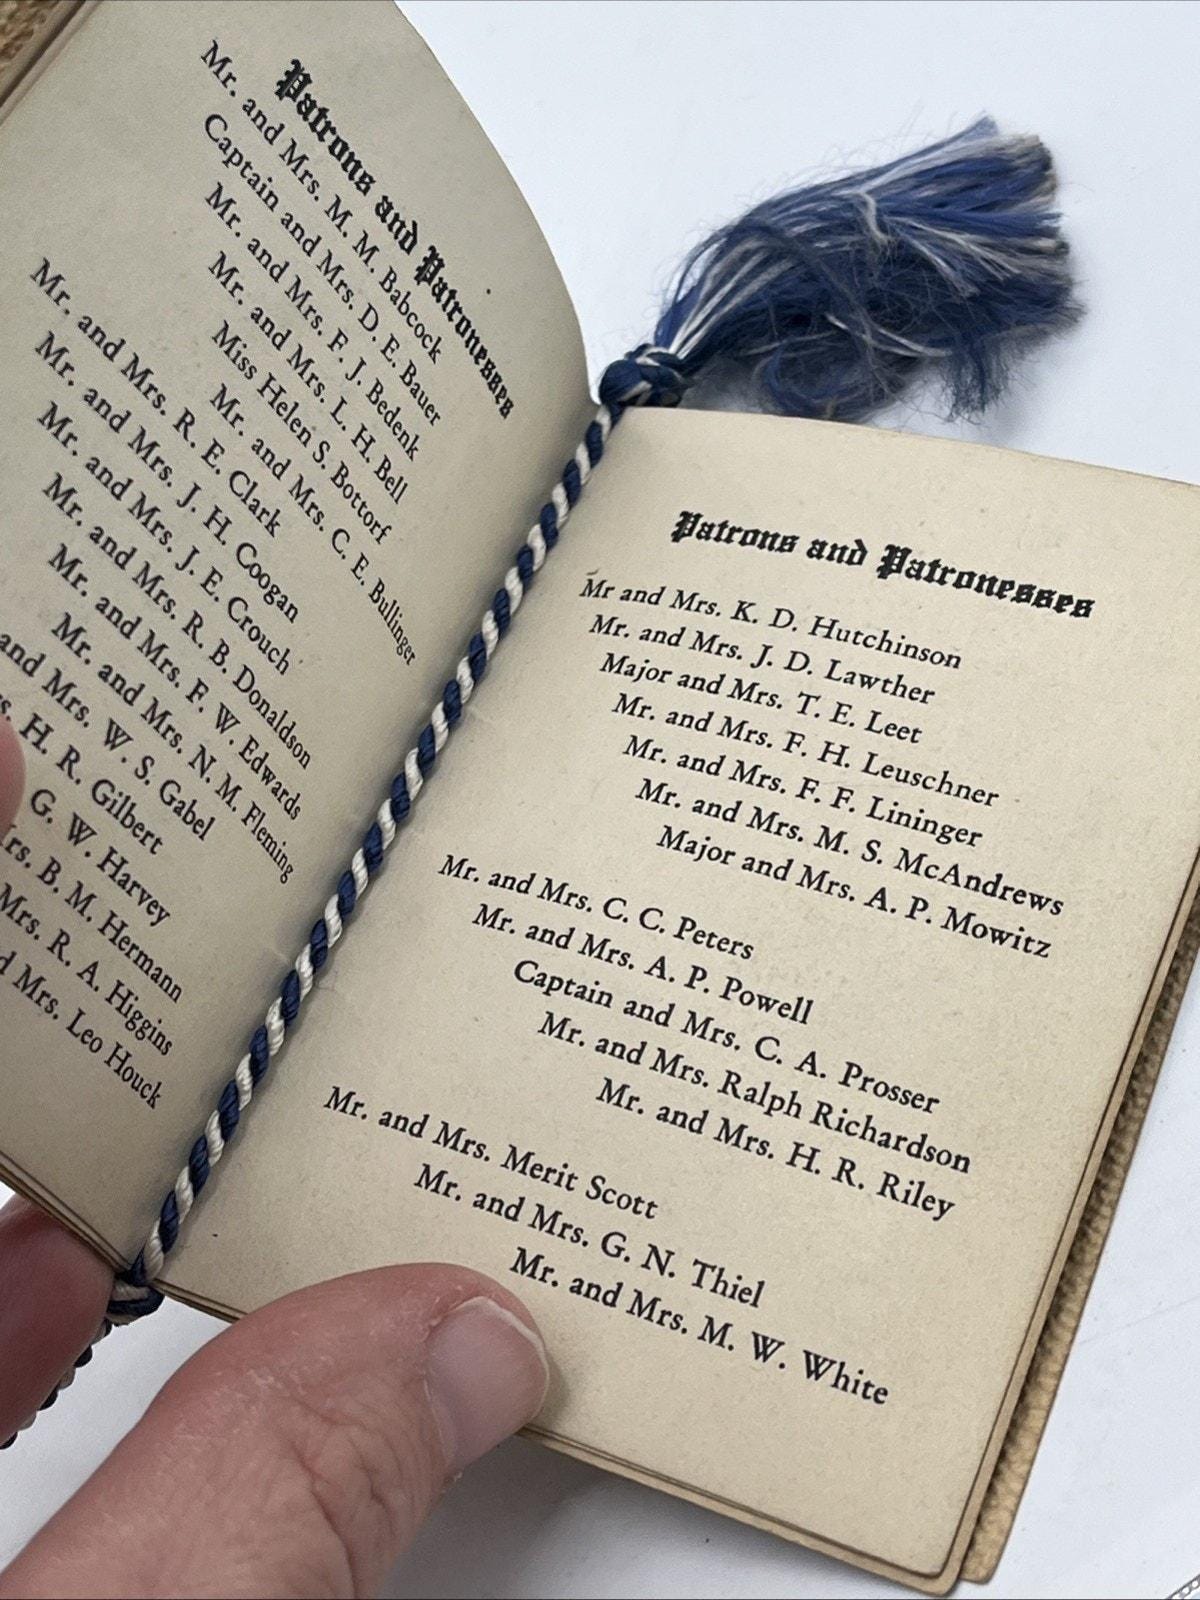 Patrons and Patronesses
Mr. and Mrs. M. M. Babcock
Captain and Mrs. D. E. Bauer
Mr. and Mrs. F. J. Bedenk
Mr. and Mrs. L. H. Bell
Miss Helen S. Bottorf
Mr. and Mrs. C. E. Bullinger
Mr. and Mrs. R. E. Clark
Mr. and Mrs. J. H. Coogan
Mr. and Mrs. J. E. Crouch
Mr. and Mrs. R. B. Donaldson
Mr. and Mrs. F. W. Edwards
Mr. and Mrs. N. M. Fleming
and Mrs. W. S. Gabel
H. R. Gilbert
G. W. Harvey
B. M. Hermann
Mrs. R. A. Higgins
Mrs. Leo Houck
Patrons and Patronesses
Mr and Mrs. K. D. Hutchinson
Mr. and Mrs. J. D. Lawther
Major and Mrs. T. E. Leet
Mr. and Mrs. F. H. Leuschner
Mr. and Mrs. F. F. Lininger
Mr. and Mrs. M. S. McAndrews
Major and Mrs. A. P. Mowitz
Mr. and Mrs. C. C. Peters
Mr. and Mrs. A. P. Powell
Captain and Mrs. C. A. Prosser
Mr. and Mrs. Ralph Richardson
Mr. and Mrs. H. R. Riley
Mr. and Mrs. Merit Scott
Mr. and Mrs. G. N. Thiel
Mr. and Mrs. M. W. White